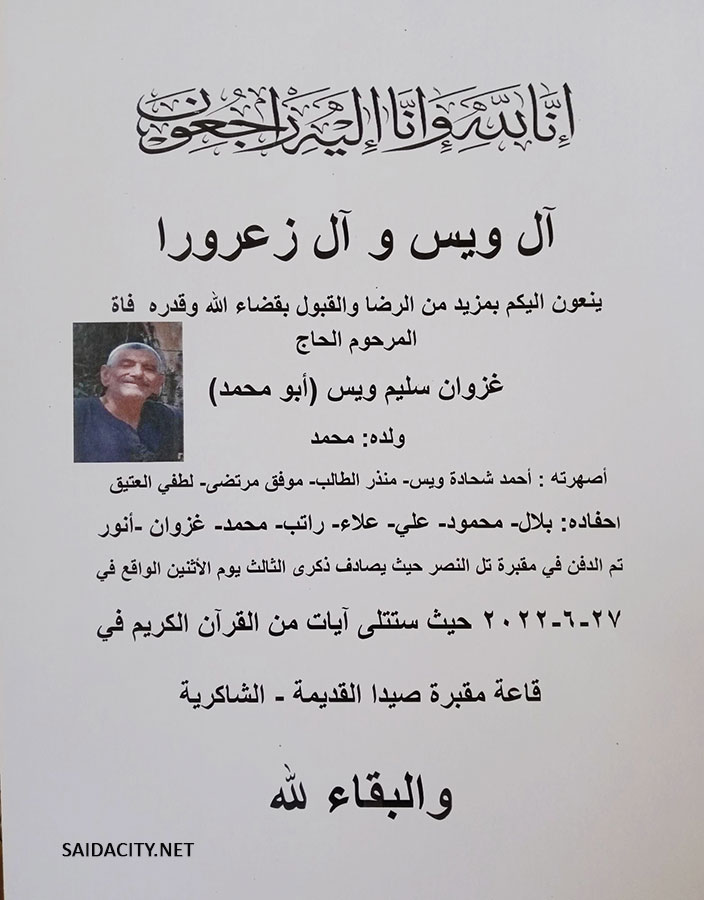 إنا لله وإنا إليه راجعون
آل ويس و آل زعرورا
ينعون اليكم بمزيد من الرضا والقبول بقضاء الله وقدره فاة
المرحوم الحاج
غزوان سليم ويس (أبو محمد)
ولده: محمد
أصهرته : أحمد شحادة ويس- منذر الطالب- موفق مرتضى- لطفي العتيق
احفاده: بلال- محمود- علي- علاء- راتب- محمد- غزوان -أنور
تم الدفن في مقبرة تل النصر حيث يصادف ذكرى الثالث يوم الأثنين الواقع في
٢٧-٦-٢٠٢٢ حيث ستتلى آيات من القرآن الكريم في
قاعة مقبرة صيدا القديمة - الشاكرية
والبقاء لله
SAIDACITY.NET